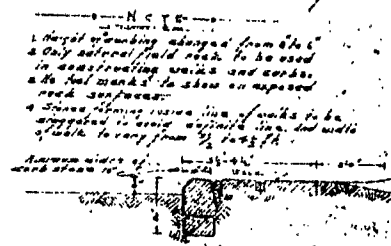 NOTE
1. Height of curbing changed from " to 6"
2. Only natural field rock to be used
in constructing walks and curbs.
3. No tool marks to show on exposed
rock surfaces.
4. Stones forming inside line of walks to be
staggered to avoid definite line, and width
of walk to vary from 3½ to 4½ ft.
Minimum width of
curb stone 10"
3½-4½
Walk